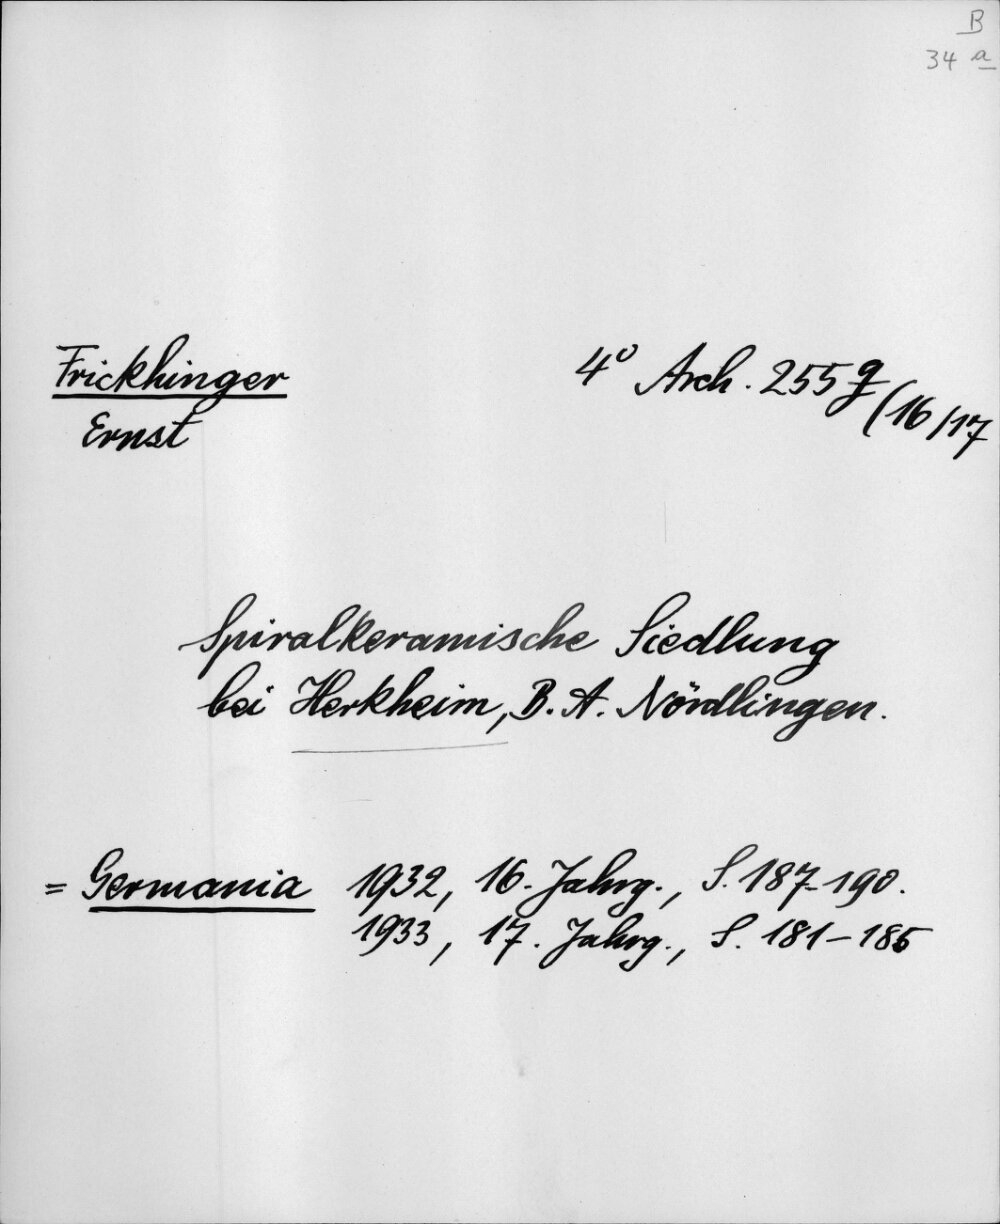 B
34 a
Frickhinger
Ernst
4° Arch. 255 g (16/17
Spiralkeramische Siedlung
bei Herkheim, B. A. Nördlingen.
= Germania 1932, 16. Jahrg., S. 187-190.
1933, 17. Jahrg., S. 181-185